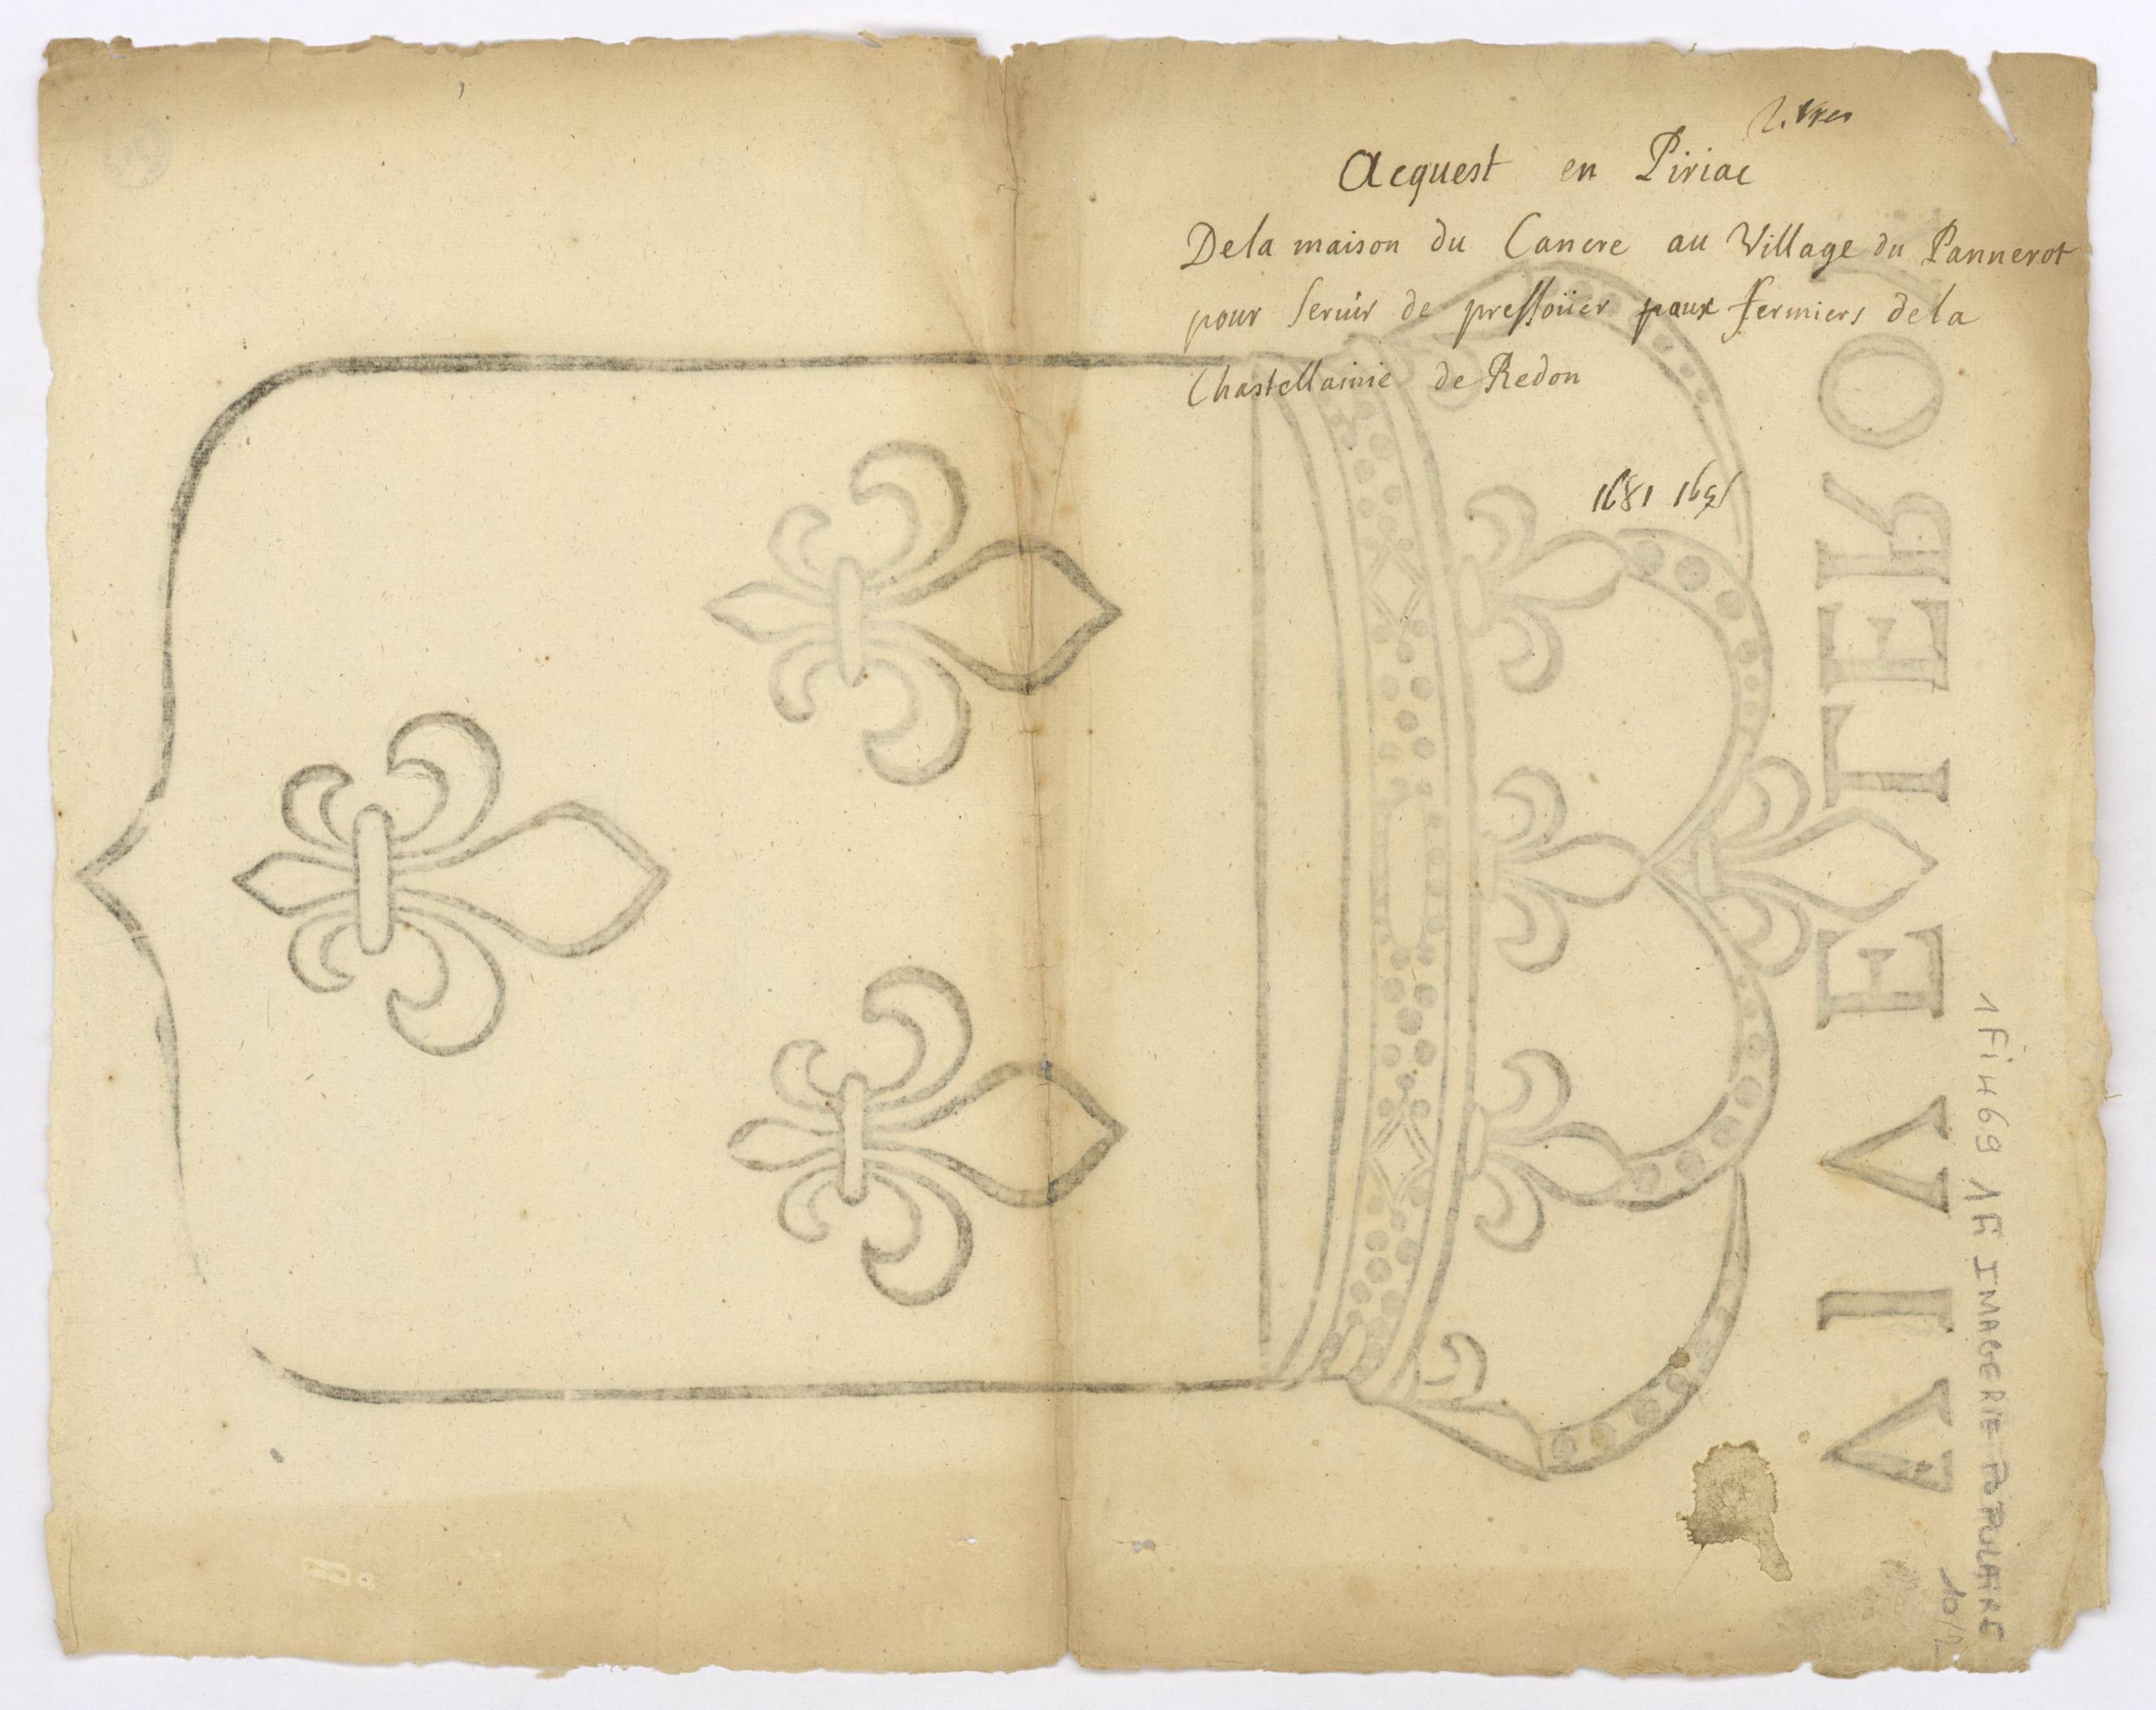 Acquest en Piriac
Dela maison du Cancre au Village du Pannerot
pour Seruir de pressoüer paux fermiers dela
Chastellainie de Redon
1681
VIVE LE ROY
1Fi469 1Fi IMAGERIE POPULAIRE
10/2